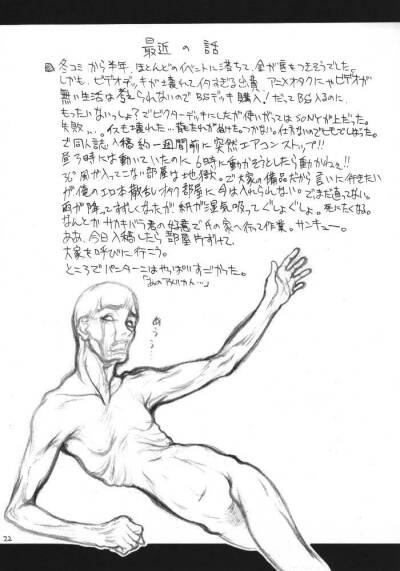 最近の話
冬コミから半年、ほとんどのイベントに落ちて、金が底をつきそうでした。
しかも、ビデオデッキが壊れてイタすぎる出費、アニメオタクにゃビデオが
無い生活は考えられないのでBSデッキ購入!だってBS入るのに、
もったいないっしょ?でビクターデッキにしたが使いがってはSONYが上だった。
失敗...。
で同人誌入稿約一週間前に突然エアコンストップ!!
昼3時には動いていたのに6時に動かそうとしたら動かねぇ!!
36°風が入ってこない部屋は地獄。で大家の備品だから言いに行きたい
が俺のエロ本散乱オタク部屋に今は入れられない。でまだ直ってない。
雨が降ってすずしくなったが、紙が湿気吸ってぐしょぐしょ。死にたくなる。
なんとかサカキバラ君の好意で氏の家へ行って作業。サンキュー。
ああ、今日入稿したら部屋かたずけて、
大家を呼びに行こう。
ところでバーニーはやっぱいすごかった。
あうう...
22